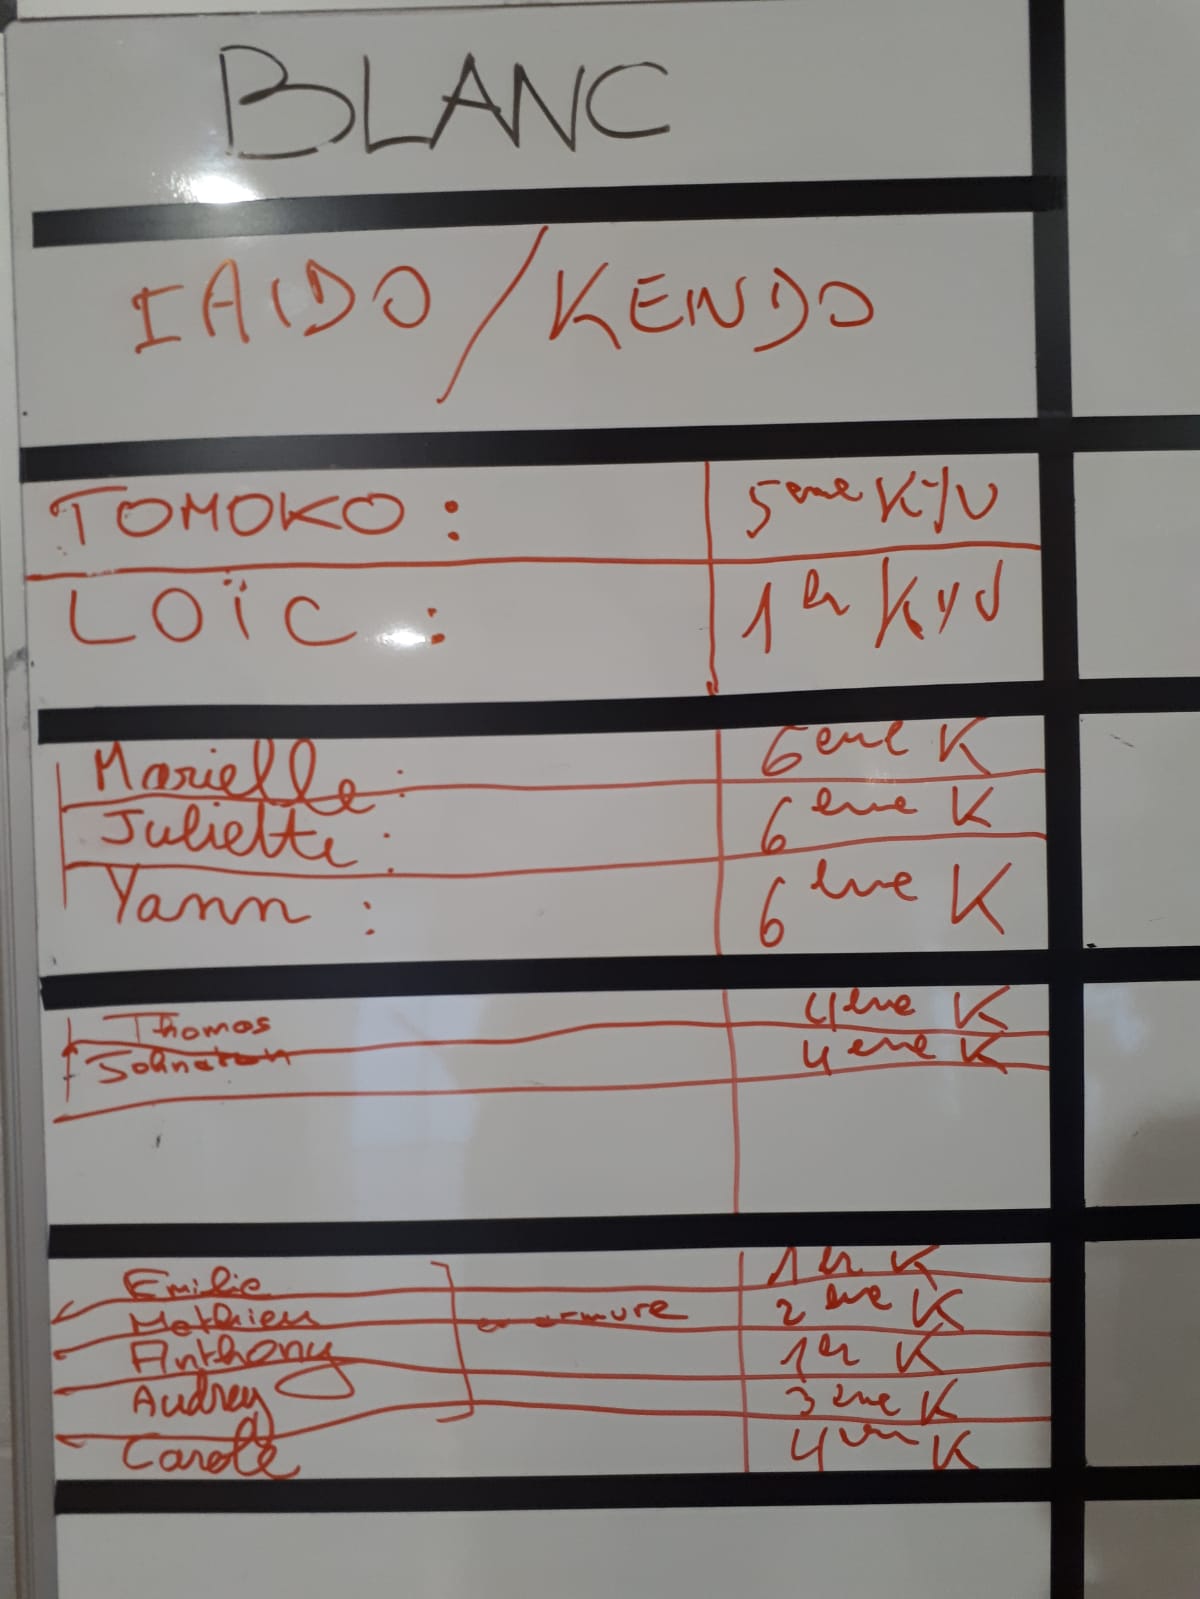 BLANC
IAIDO/KENDO
TOMOKO : 5eme KYU
LOÏC : 1er KYU
Marielle : 6eme K
Juliette : 6eme K
Yann : 6eme K
Thomas 4eme K
Johnatan 4eme K
Emilie 1er K
Mathieu en armure 2eme K
Anthony 1er K
Audrey 3eme K
Carole 4eme K